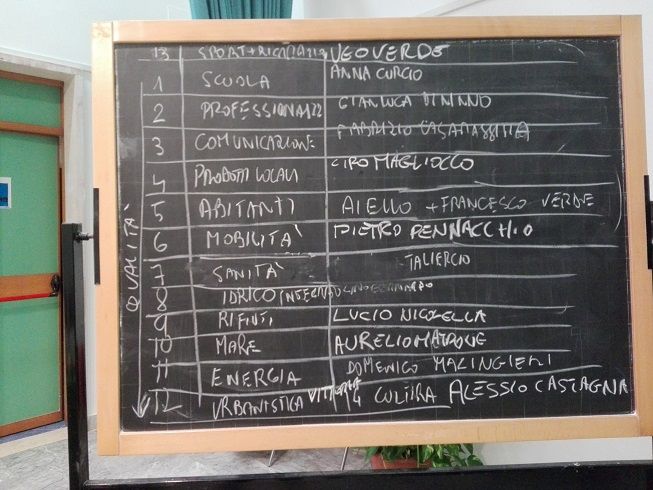 13 SPORT+RICREAZIONE VEOVERDE
1 SCUOLA ANNA CURCIO
2 PROFESSIONALIZZ GIANLUCA DININNO
3 COMUNICAZIONE FABRIZIO
4 PRODOTTI LOCALI CIRO MAGLIOCCO
5 ABITANTI AIELLO + FRANCESCO VERDE
6 MOBILITÀ PIETRO PENNACCHIO
7 SANITÀ TALIERCIO
8 IDRICO INTEGRATO
9 RIFIUTI LUCIO NICOLELLA
10 MARE AURELIO MATRONE
11 ENERGIA DOMENICO MALINGIERI
12 URBANISTICA 14 CULTURA ALESSIO CASTAGNA
QUALITÀ